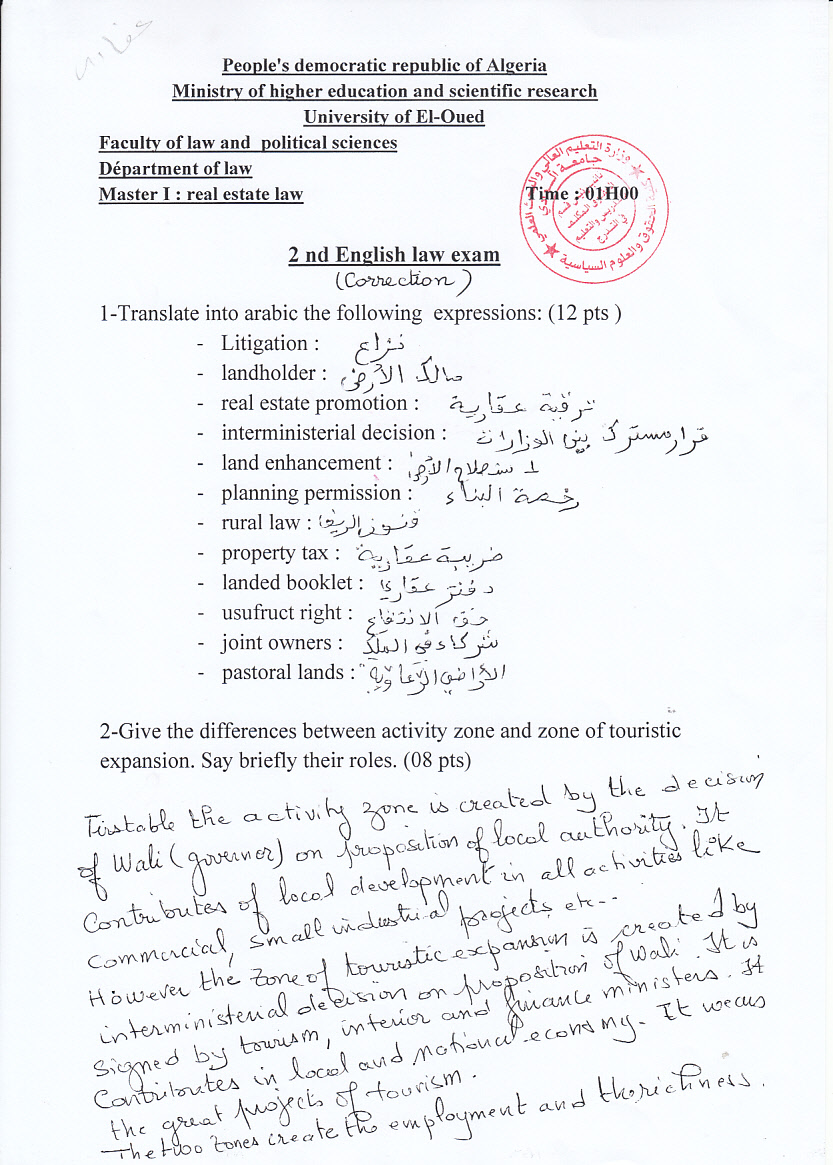 People's democratic republic of Algeria
Ministry of higher education and scientific research
University of El-Oued
Faculty of law and political sciences
Département of law
Master I : real estate law Time : 01H00
وزارة التعليم العالي والبحث العلمي
الحقوق والعلوم السياسية
2 nd English law exam
(Correction)
1-Translate into arabic the following expressions: (12 pts )
- Litigation : نزاع
- landholder : مالك الأرض
- real estate promotion : ترقية عقارية
- interministerial decision : قرار مشترك بين الوزارات
- land enhancement : استصلاح الأرض
- planning permission : رخصة البناء
- rural law :
- property tax : ضريبة عقارية
- landed booklet : دفتر عقاري
- usufruct right : حق الانتفاع
- joint owners : شركاء في الملك
- pastoral lands : الأراضي الرعاوية
2-Give the differences between activity zone and zone of touristic
expansion. Say briefly their roles. (08 pts)
Firstable the activity zone is created by the decision
of Wali (governor) on proposition of local authority. It
Contributes of local development in all activities like
commercial, small industrial projects, etc--
However the zone of touristic expansion is created by
interministerial decision on proposition of Wali. It is
signed by tourism, interior and finance ministers. It
Contributes in local and national economy. It
the great projects of tourism.
The two zones create the employment and the richness.